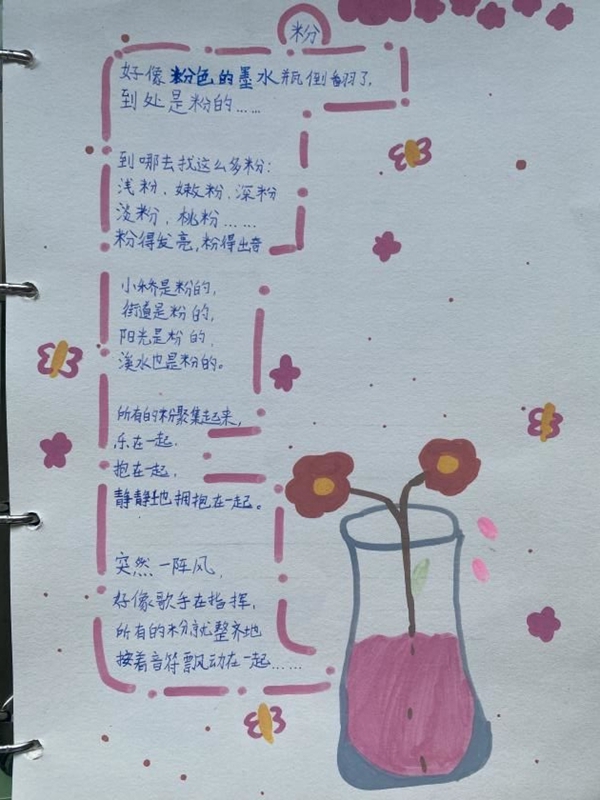 粉
好像粉色的墨水瓶倒翻了,
到处是粉的……
到哪去找这么多粉:
浅粉、嫩粉、深粉
淡粉、桃粉……
粉得发亮,粉得出奇
小桥是粉的,
街道是粉的,
阳光是粉的,
溪水也是粉的。
所有的粉聚集起来,
乐在一起.
抱在一起.
静静地拥抱在一起。
突然一阵风,
好像歌手在指挥,
所有的粉就整齐地
按着音符飘动在一起……